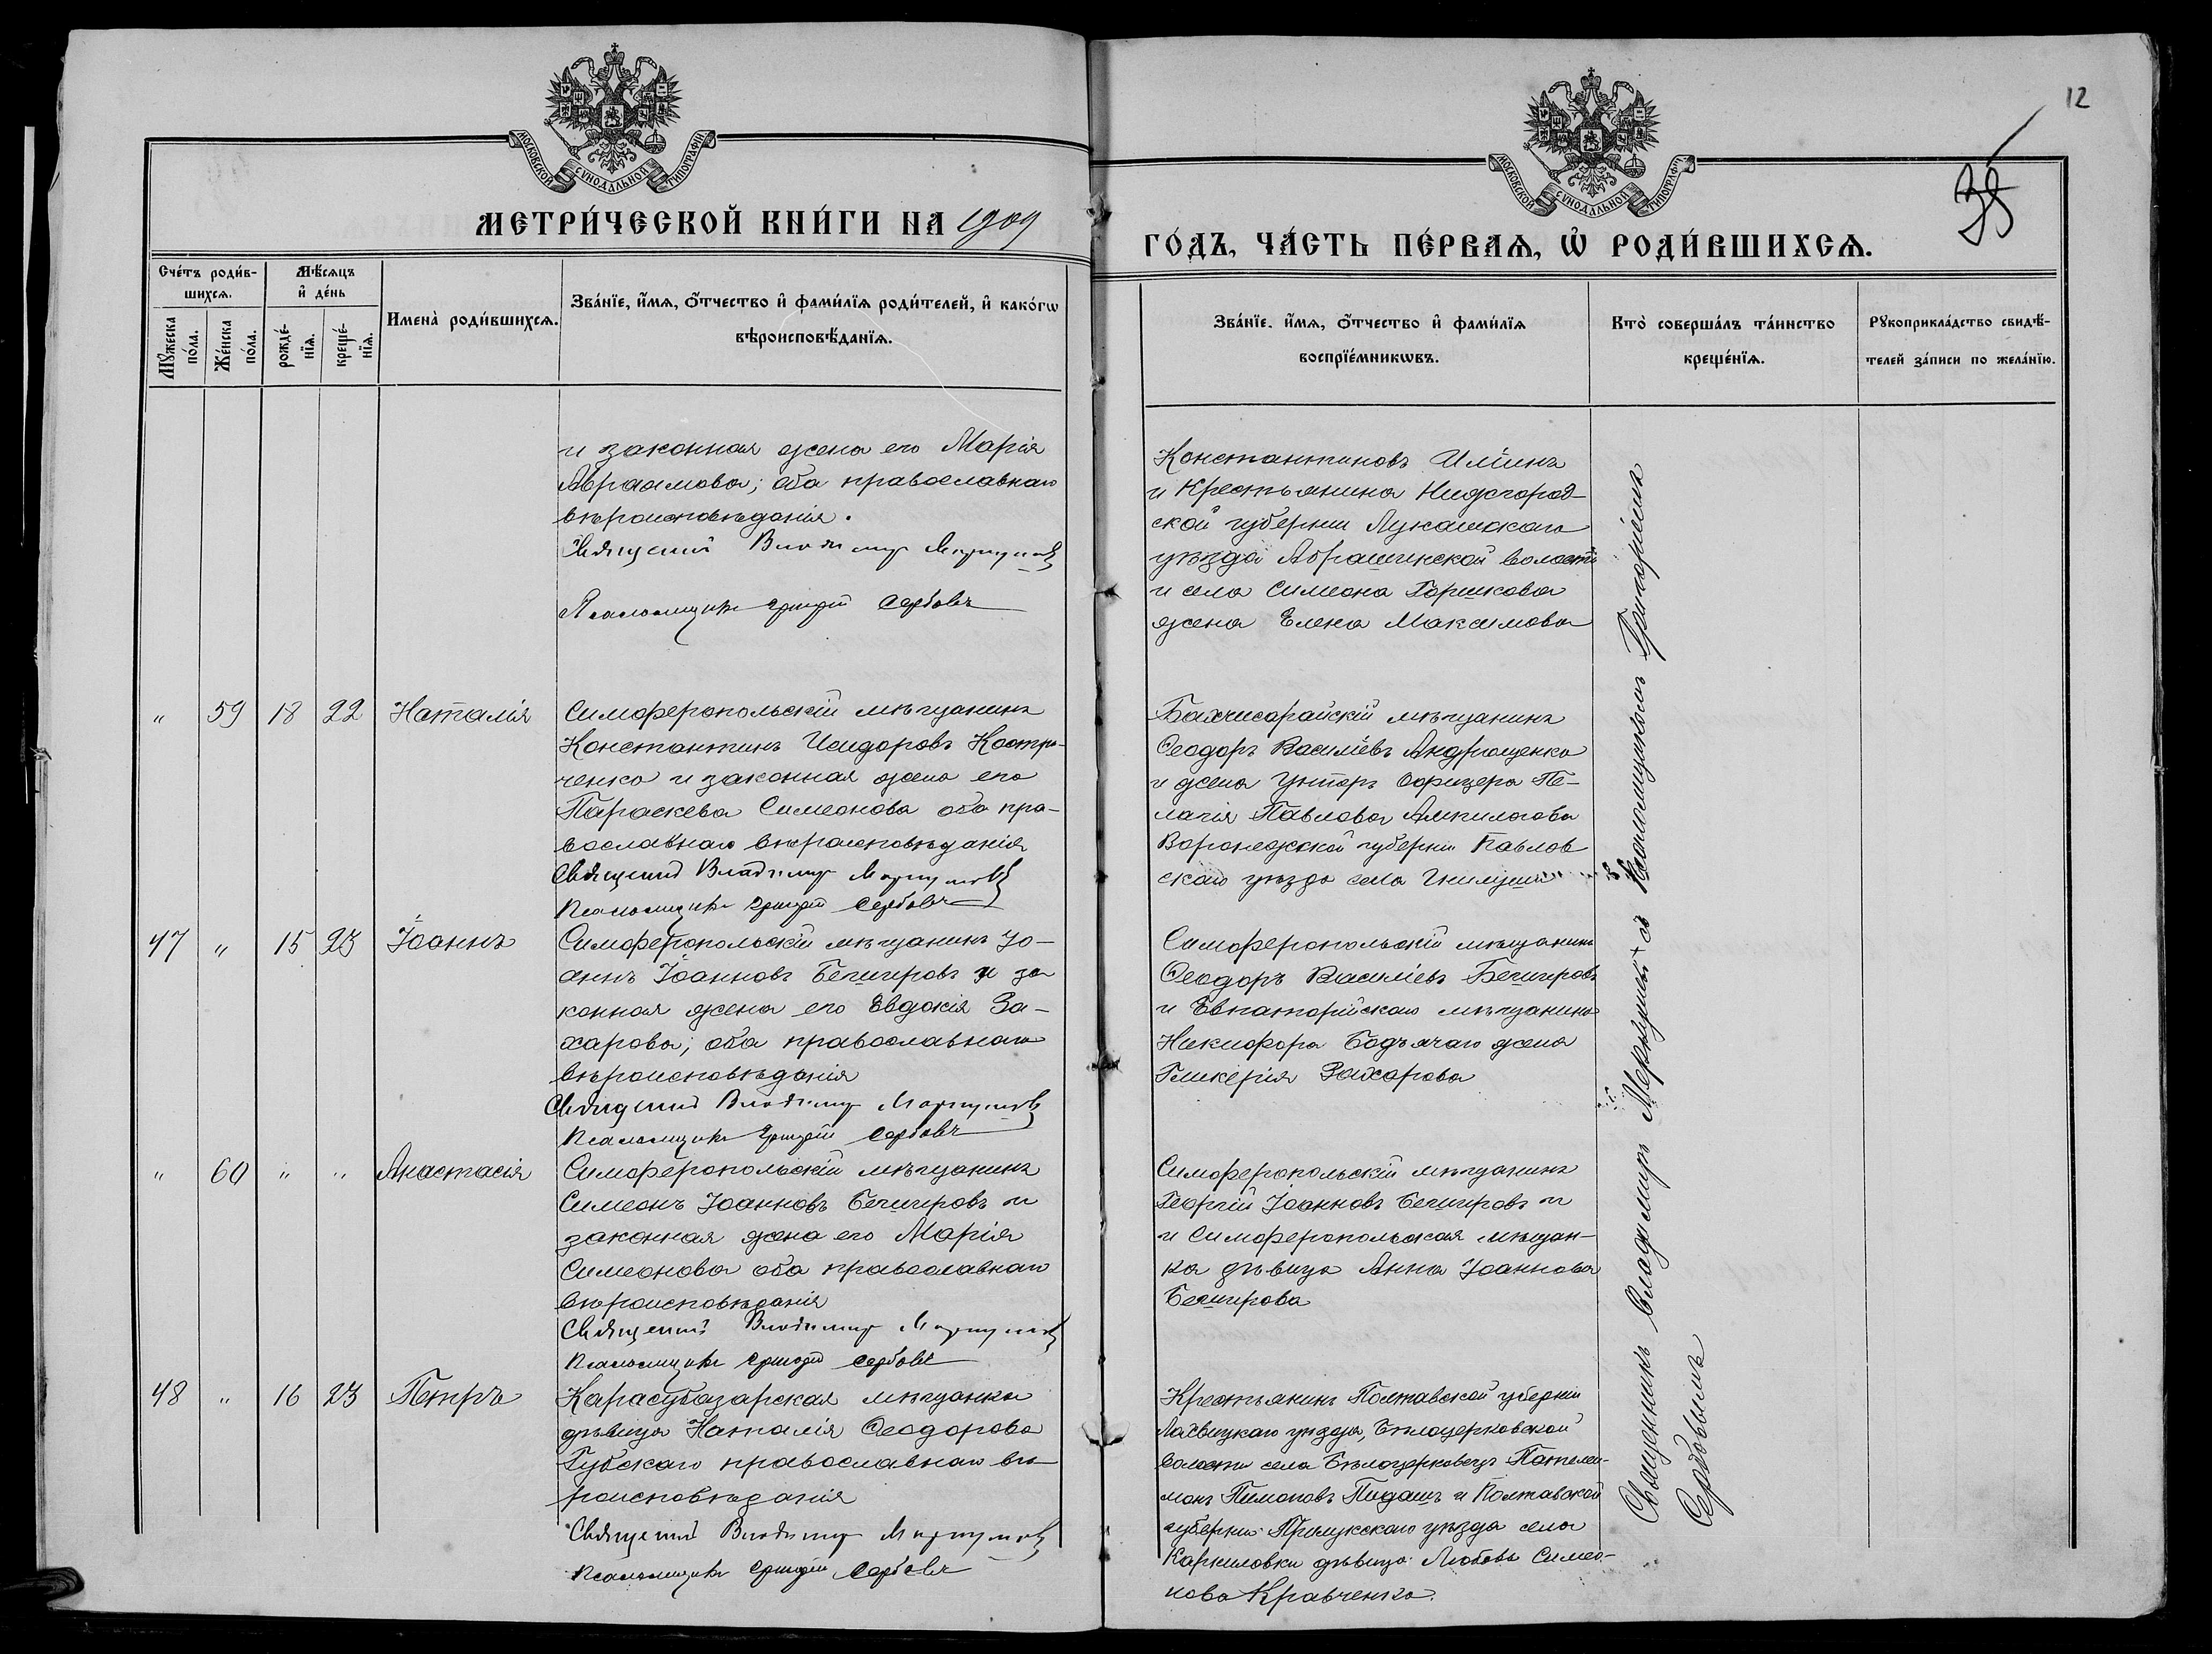 12
35
МОСКОВСКОЙ СѴНОДАЛЬНОЙ ТИПОГРАФІИ
МЕТРИ́ЧЕСКОЙ КНИ́ГИ НА 1909
МОСКОВСКОЙ СѴНОДАЛЬНОЙ ТИПОГРАФІИ
ГО́ДЪ, ЧА́СТЬ ПЕ́РВАѦ, Ѡ҆ РОДИ́ВШИХСѦ.
Сче́тъ роди́в-
шихсѧ.
Мꙋ́жеска
по́ла.
Же́нска
по́ла.
Мѣ́сѧцъ
и҆ де́нь
рожде́-
нїѧ.
креще́-
нїѧ.
Имена̀ роди́вшихсѧ.
Зва́нїе, и҆́мѧ, ѻ҆́тчество и҆ фами́лїѧ роди́телей, и҆ како́гѡ
вѣроисповѣ́данїѧ.
Зва́нїе. и҆́мѧ, ѻ҆́тчество и҆ фами́лїѧ
воспрїе́мникѡвъ.
Кто̀ соверша́лъ та́инство
креще́нїѧ.
Рꙋкоприкла́дство свидѣ́-
телей за́писи по жела́нїю.
и законная жена его Марія
Авраамова; оба православнаго
вѣроисповѣданія.
Священникъ Владимир Меркулов
Псаломщикъ Григорій Сербовъ
Константиновъ Илiинъ
и крестьянина Нижегород-
ской губерніи Лукашскаго
уѣзда Абрашинской волости
и села Симеона Горшкова
жена Елена Максимова
" 59 18 22 Наталія
Симферопольскій мѣщанинъ
Константинъ Исидоровъ Костри-
ченко и законная жена его
Параскева Симеонова оба пра-
вославнаго вѣроисповѣданія
Священникъ Владимир Меркулов
Псаломщикъ Григорій Сербовъ
Бахчисарайскій мѣщанинъ
Ѳеодоръ Василіевъ Андрющенко
и жена унтеръ офицера Пе-
лагія Павлова Ампилогова
Воронежской губерніи Павлов
скаго уѣзда села
47 " 15 23 Іоаннъ
Симферопольскій мѣщанинъ Іо-
аннъ Іоанновъ Бечигровъ и за
конная жена его Евдокія За-
харова; оба православнаго
вѣроисповѣданія
Священникъ Владимир Меркулов
Псаломщикъ Григорій Сербовъ
Симферопольскій мѣщанинъ
Ѳеодоръ Василіевъ Бечигровъ
и Евпаторійскаго мѣщанина
Никифора Бодъячаго жена
Гликерія Захарова
" 60 " " Анастасія
Симферопольскій мѣщанинъ
Симеонъ Іоанновъ Бечигровъ и
законная жена его Марія
Симеонова оба православнаго
вѣроисповѣданія
Священникъ Владимир Меркулов
Псаломщикъ Григорій Сербовъ
Симферопольскій мѣщанинъ
Георгій Іоанновъ Бечигровъ и
и Симферопольская мѣщан-
ка дѣвица Анна Іоаннова
Бечигрова
48 " 16 23 Петръ
Карасубазарская мѣщанка
дѣвица Наталія Ѳеодорова
Губскаго православнаго вѣ
роисповѣданія
Священникъ Владимир Меркулов
Псаломщикъ Григорій Сербовъ
Крестьянинъ Полтавской губерніи
Лохвицкаго уѣзда, Бѣлоцерковской
волости села Бѣлоцерковецъ Пателей-
монъ Пимоновъ Пидашъ и Полтавской
губерніи Прилукскаго уѣзда села
Каркиловки дѣвица Любовь Симео-
нова Кравченко.
Священникъ Владимиръ Меркуловъ съ Псаломщикомъ Григоріемъ
Сербовымъ